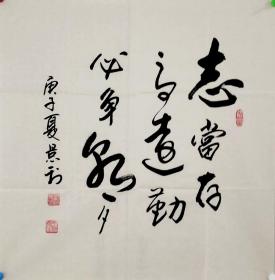 志當存
高遠勤
必争朝夕
庚子夏景利